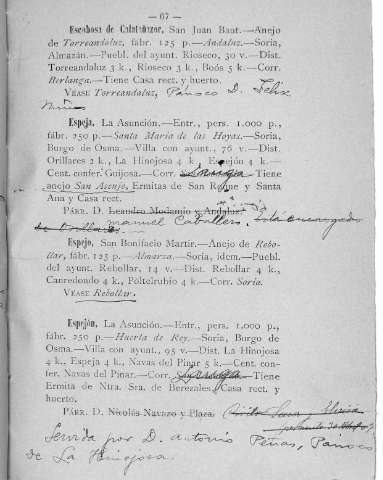 — 67 —
Escobosa de Calatañazor, San Juan Baut.—Anejo
de Torreandaluz, fábr. 125 p.—Andaluz.—Soria,
Almazán.—Puebl. del ayunt. Rioseco, 30 v.—Dist.
Torreandaluz 3 k., Rioseco 3 k., Boós 5 k.—Corr.
Berlanga.—Tiene Casa rect. y huerto.
VÉASE Torreandaluz, Párroco D. Felix
Espeja, La Asunción.—Entr., pers. 1.000 p.,
fábr. 250 p.—Santa María de las Hoyas.—Soria,
Burgo de Osma.—Villa con ayunt., 76 v.—Dist.
Orillares 2 k., La Hinojosa 4 k., Espejón 4 k.—
Cent. confer. Guijosa.—Corr. —Tiene
anejo San Asenjo, Ermitas de San Roque y Santa
Ana y Casa rect.
PÁRR. D. Leandro Modamio y Andaluz
manuel Caballero.
Espejo, San Bonifacio Martir.—Anejo de Rebo-
llar, fábr. 125 p.—Almarza.—Soria, idem.—Puebl.
del ayunt. Rebollar, 14 v.—Dist. Rebollar 4 k.,
Canredondo 4 k., Poltelrubio 4 k.—Corr. Soria.
VÉASE Rebollar.
Espejón, La Asunción.—Entr., pers. 1.000 p.,
fábr. 250 p.—Huerta de Rey.—Soria, Burgo de
Osma.—Villa con ayunt., 95 v.—Dist. La Hinojosa
4 k., Espeja 4 k., Navas del Pinar 5 k.—Cent. con-
fer. Navas del Pinar.—Corr. —Tiene
Ermita de Ntra. Sra. de Berezales, Casa rect. y
huerto.
PÁRR. D. Nicolás Navazo y Plaza.
Servida por D. Antonio Peñas, Párroco
de La Hinojosa.